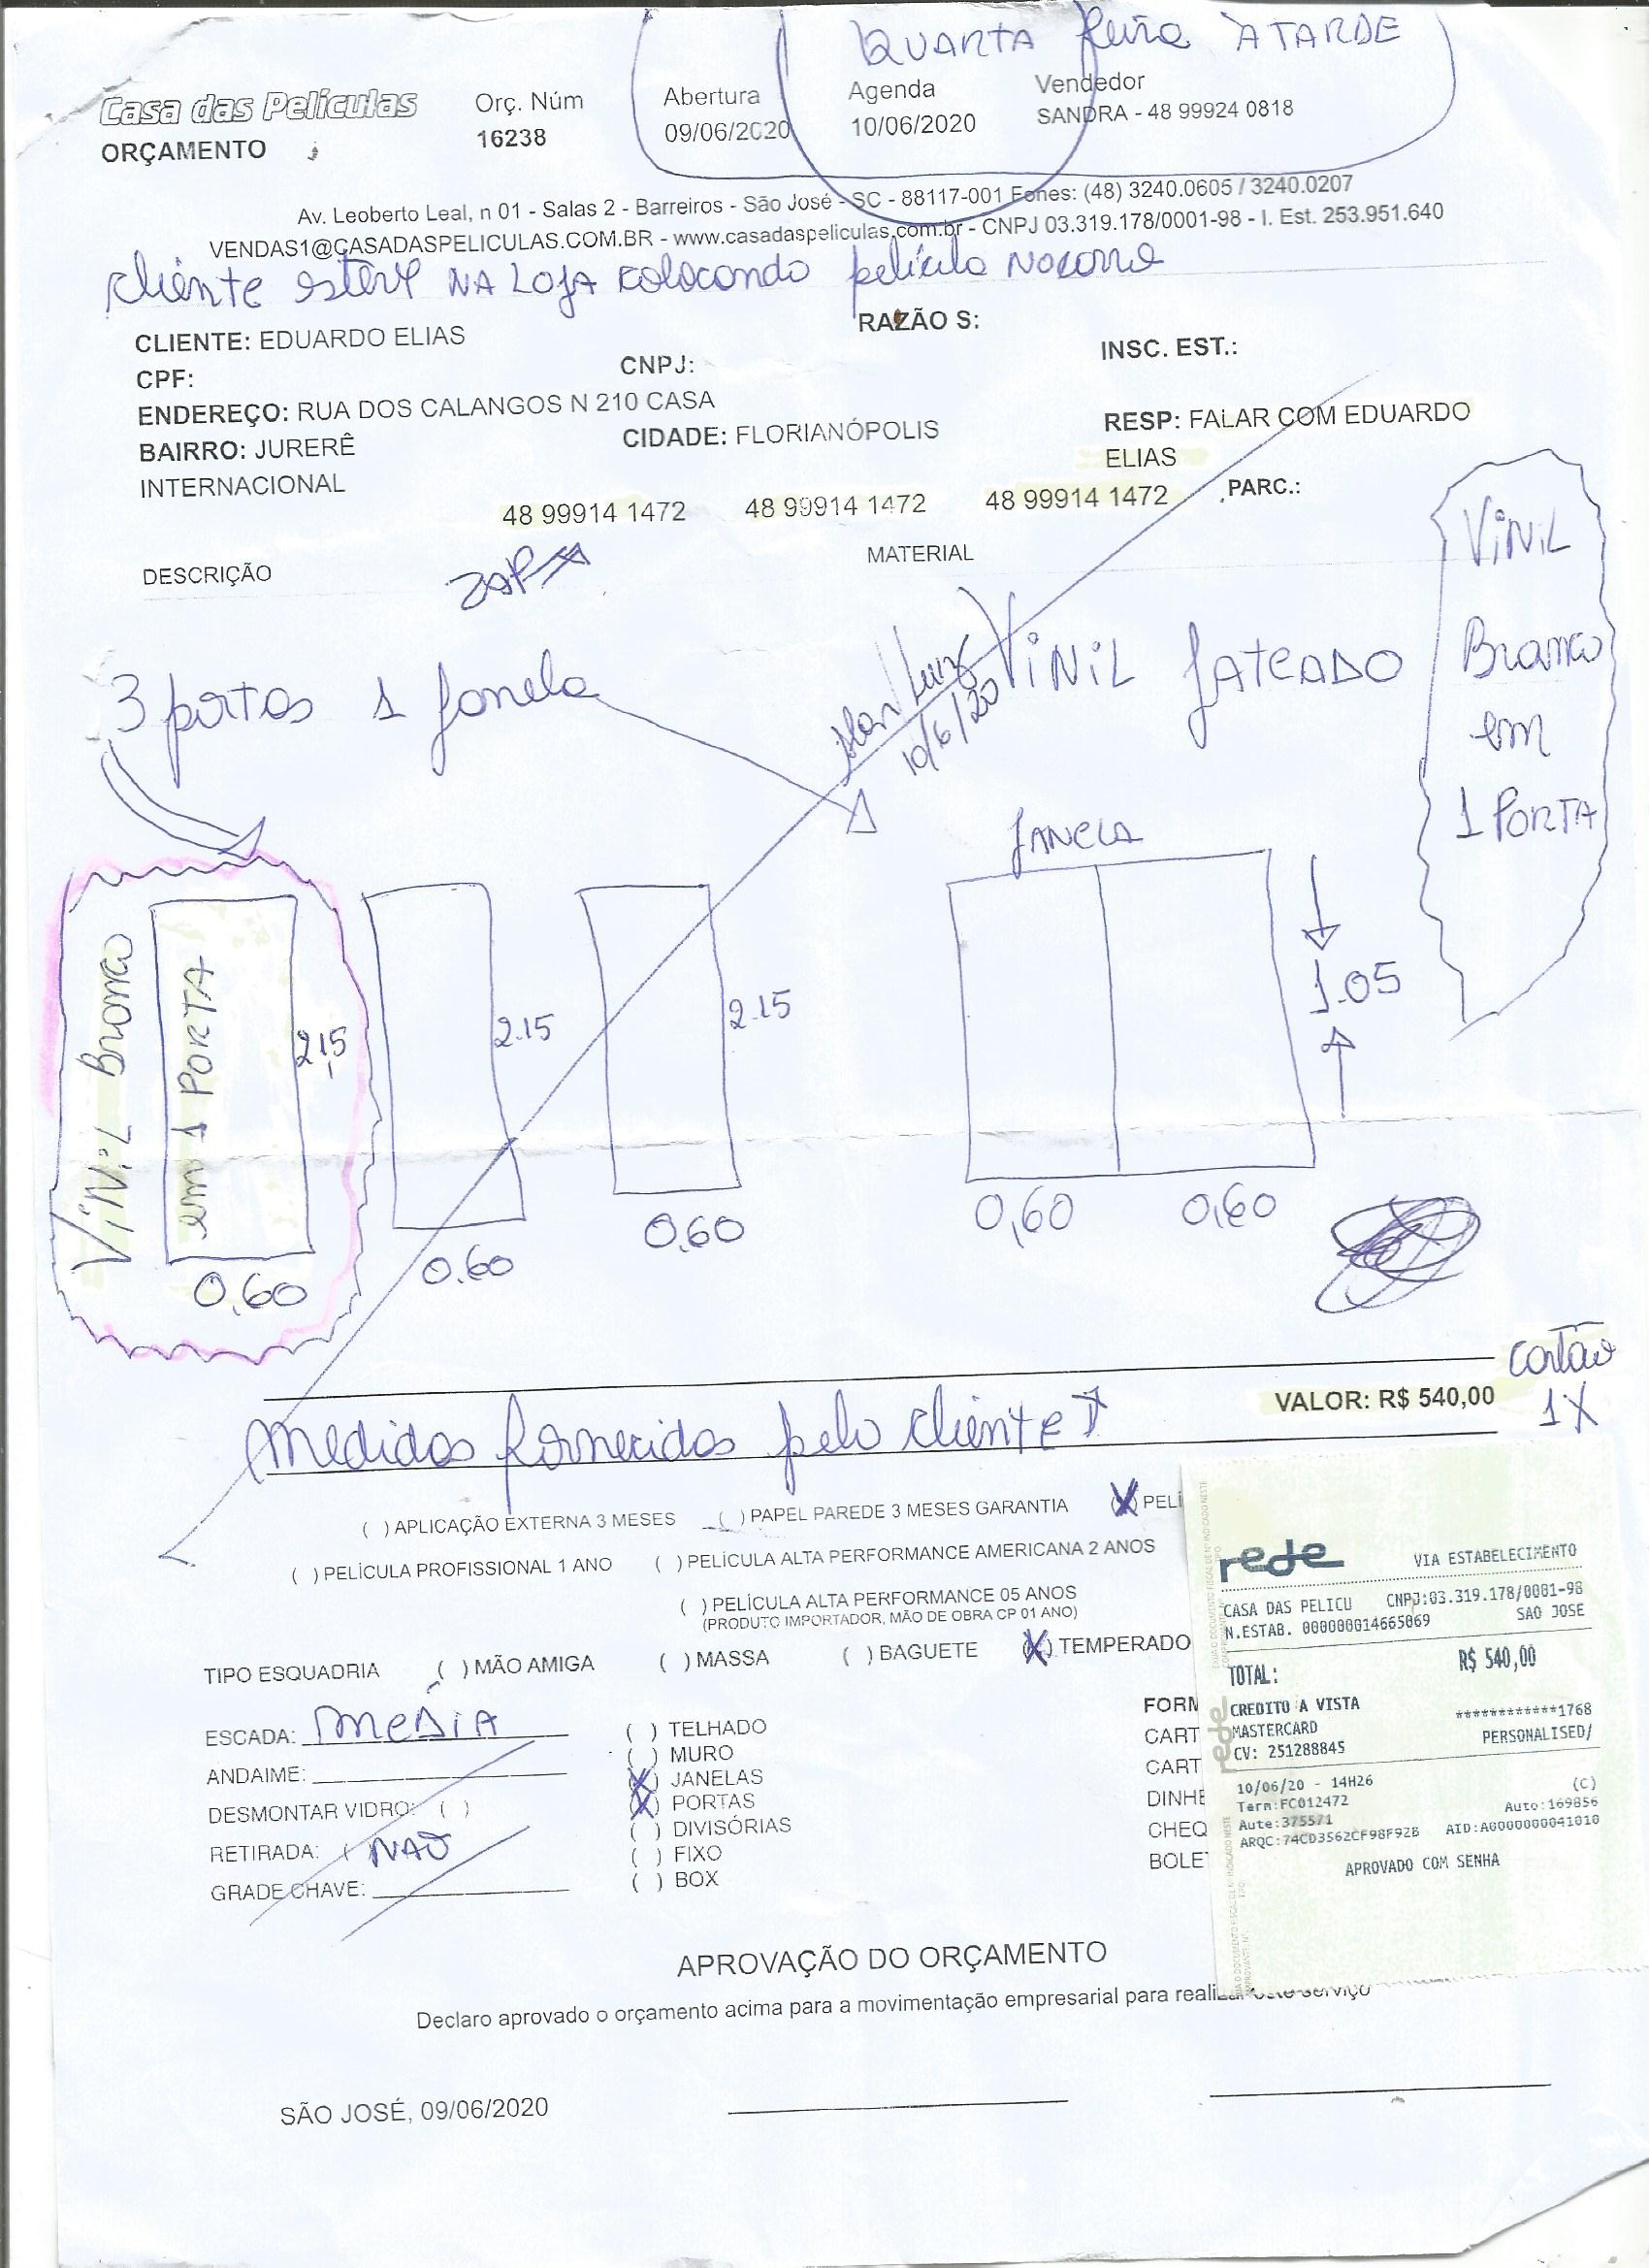 QUARTA feira À TARDE
Casa das Películas
ORÇAMENTO
Orç. Núm
16238
Abertura
09/06/2020
Agenda
10/06/2020
Vendedor
SANDRA - 48 99924 0818
Av. Leoberto Leal, n 01 - Salas 2 - Barreiros - São José - SC - 88117-001 Fones: (48) 3240.0605 / 3240.0207
VENDAS1@CASADASPELICULAS.COM.BR - www.casadaspeliculas.com.br - CNPJ 03.319.178/0001-98 - I. Est. 253.951.640
cliente esteve NA LOJA colocando película no carro
CLIENTE: EDUARDO ELIAS
RAZÃO S:
CPF:
CNPJ:
INSC. EST.:
ENDEREÇO: RUA DOS CALANGOS N 210 CASA
BAIRRO: JURERÊ
INTERNACIONAL
CIDADE: FLORIANÓPOLIS
RESP: FALAR COM EDUARDO
ELIAS
48 99914 1472 48 99914 1472 48 99914 1472
PARC.:
DESCRIÇÃO
ZAP
MATERIAL
3 portas 1 janela
Luiz
10/6/20
VINIL JATEADO
VINIL
Branco
em
1 PORTA
JANELA
VINIL Branco
em 1 PORTA
2.15
0,60
2.15
0.60
2.15
0.60
1.05
0,60
0,60
cartão
1X
VALOR: R$ 540,00
medidas fornecidas pelo cliente
( ) APLICAÇÃO EXTERNA 3 MESES ( ) PAPEL PAREDE 3 MESES GARANTIA (X) PELÍ
( ) PELÍCULA PROFISSIONAL 1 ANO ( ) PELÍCULA ALTA PERFORMANCE AMERICANA 2 ANOS
( ) PELÍCULA ALTA PERFORMANCE 05 ANOS
(PRODUTO IMPORTADOR, MÃO DE OBRA CP 01 ANO)
TIPO ESQUADRIA ( ) MÃO AMIGA ( ) MASSA ( ) BAGUETE (X) TEMPERADO
ESCADA: MEDIA
ANDAIME:
DESMONTAR VIDRO: ( )
RETIRADA: ( NÃO
GRADE CHAVE:
( ) TELHADO
( ) MURO
(X) JANELAS
(X) PORTAS
( ) DIVISÓRIAS
( ) FIXO
( ) BOX
FORM
CART
CART
DINHE
CHEQ
BOLE
rede
VIA ESTABELECIMENTO
CASA DAS PELICU CNPJ:03.319.178/0001-98
N.ESTAB. 000000014665069 SAO JOSE
TOTAL: R$ 540,00
CREDITO A VISTA
MASTERCARD ************1768
CV: 251288845 PERSONALISED/
10/06/20 - 14H26 (C)
Term:FC012472 Auto:169856
Aute:375571
ARQC:74CD3562CF98F92B AID:A0000000041010
APROVADO COM SENHA
rede
APROVAÇÃO DO ORÇAMENTO
Declaro aprovado o orçamento acima para a movimentação empresarial para realizar este serviço
SÃO JOSÉ, 09/06/2020